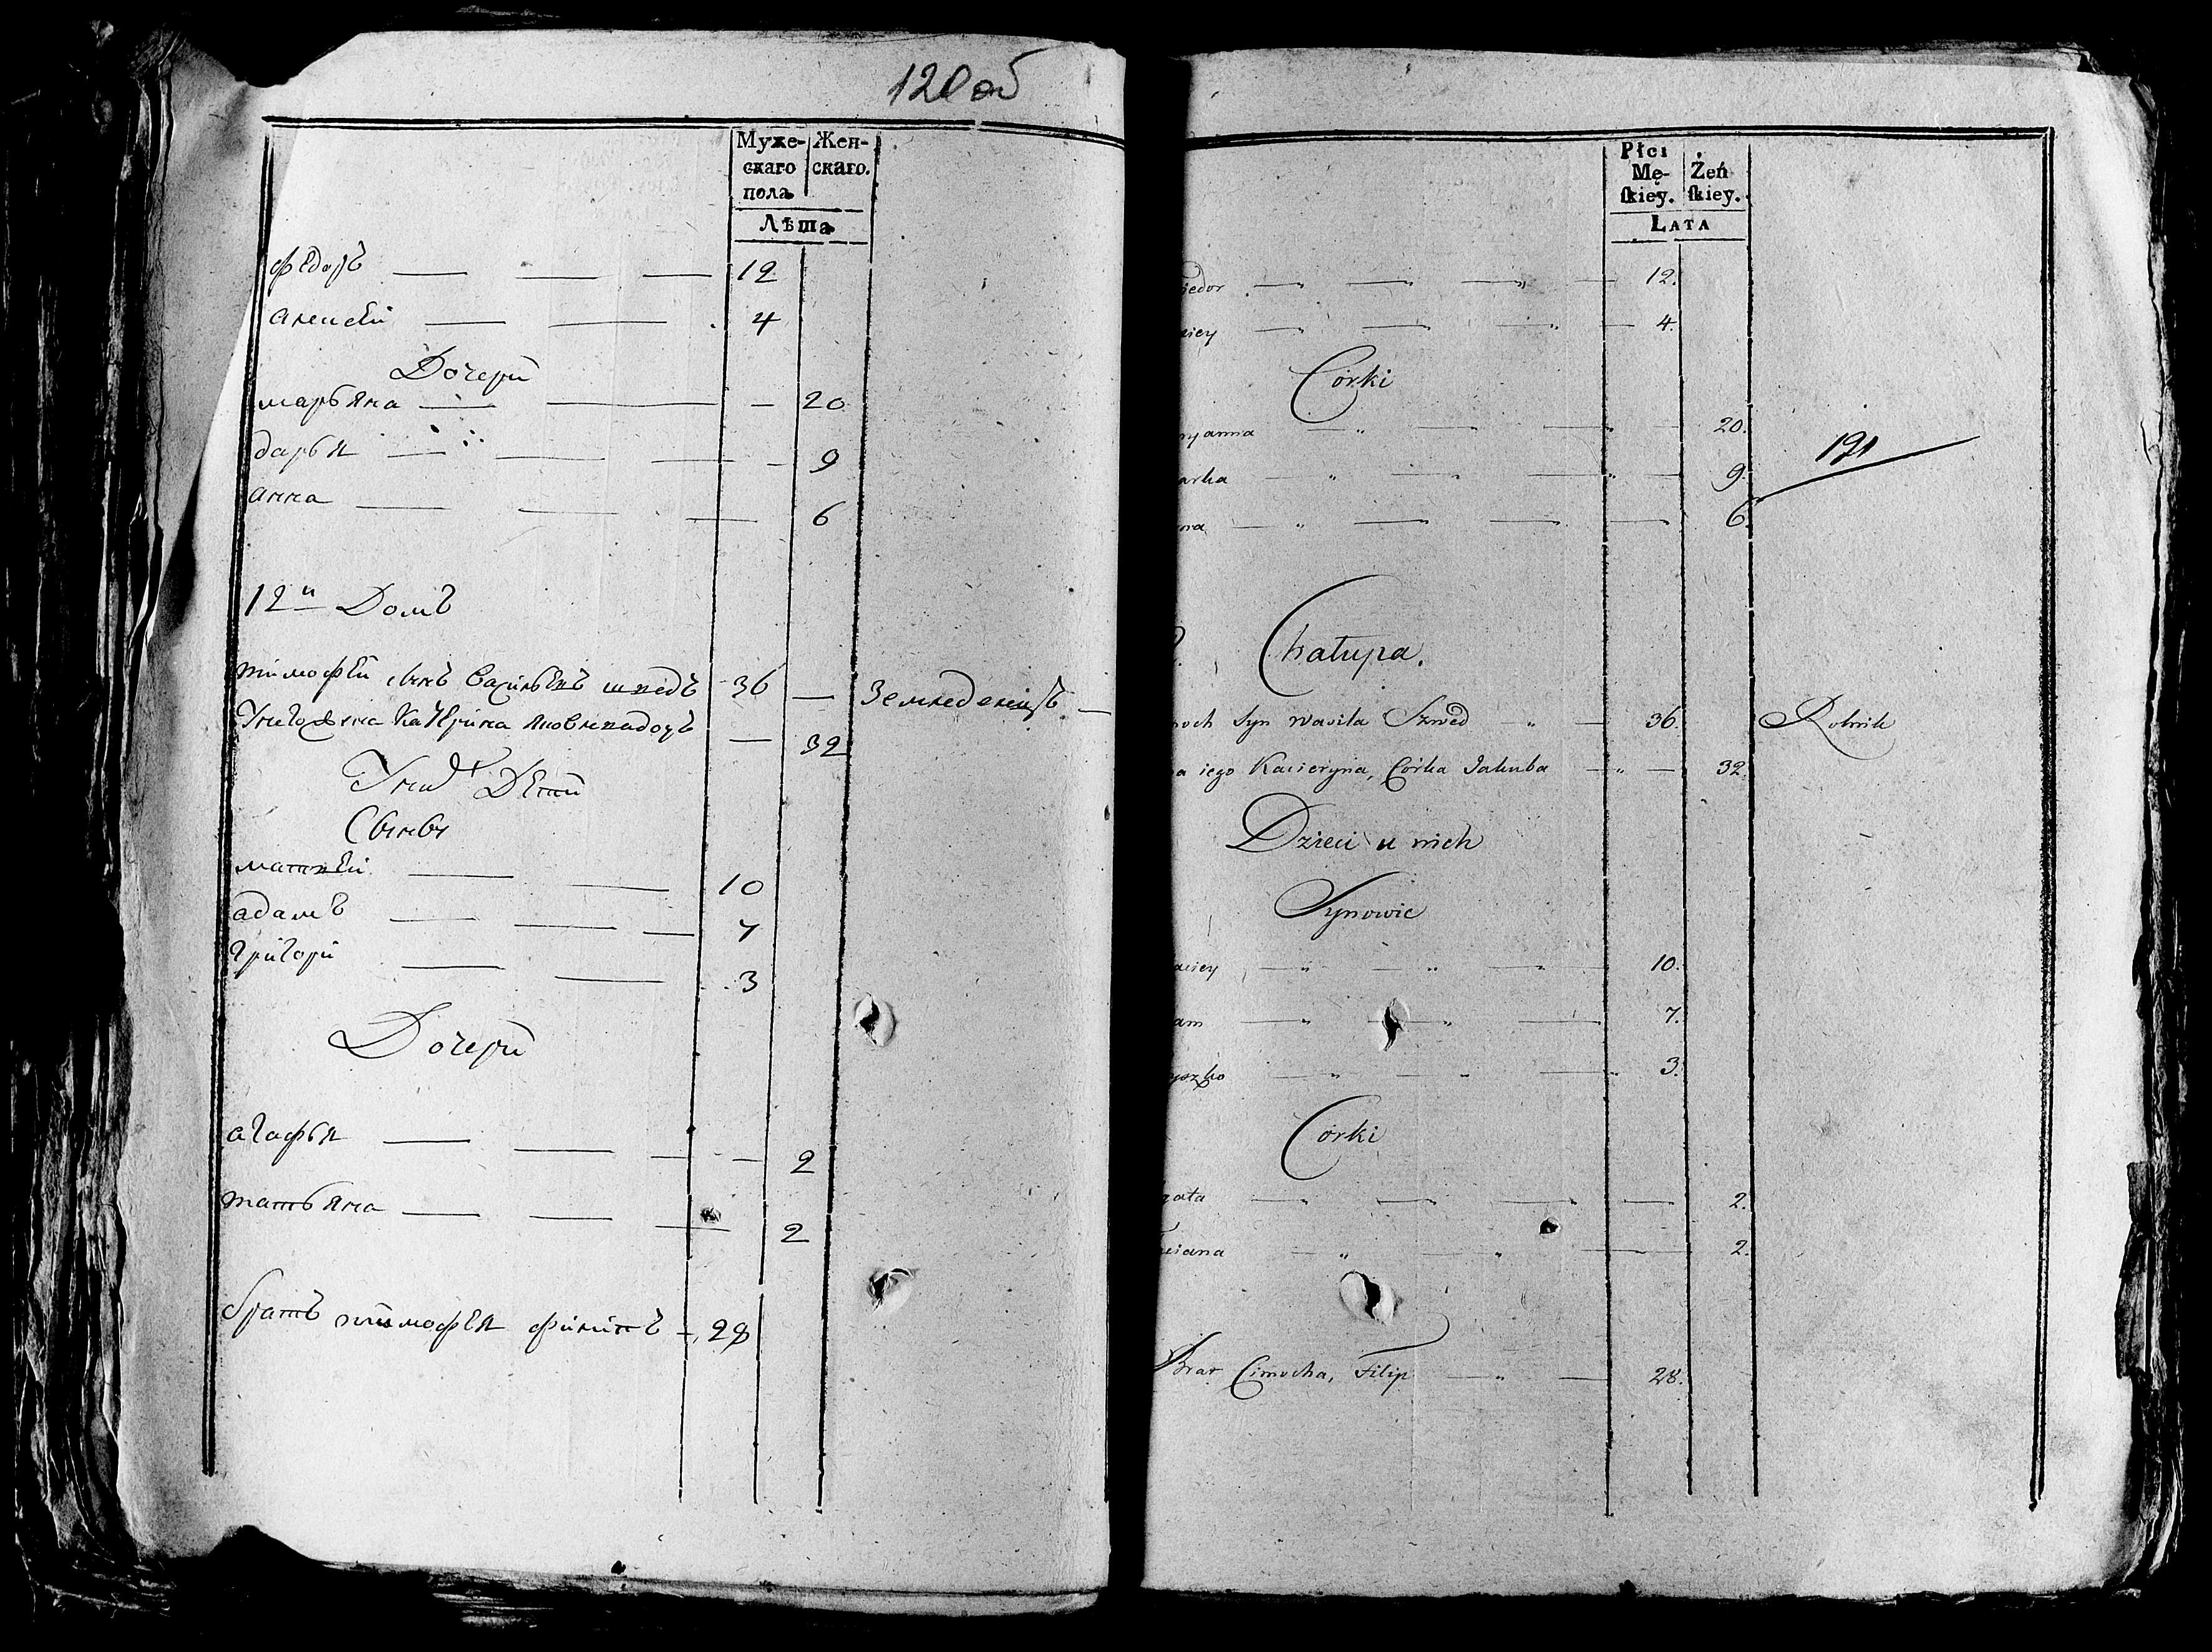 120 об
Муже-
скаго
пола
Жен-
скаго.
Лѣта
федоръ 12
алексей 4
Дочери
марьяна 20
дарья 9
анна 6
12й Домъ
тимофей сынъ Василевъ шведъ 36 Земледелецъ
Унего жена Катерина яковлевадочь 32
Уних Дети
Сыны
матвей 10
адамъ 7
григори 3
Дочери
агафья 2
татьяна 2
братъ тимофея филипъ 28
Płci
Mę-
ſkiey.
Żeń
ſkiey.
Lata
iedor 12.
xiey 4.
Córki
ryanna 20.
arka 9.
nna 6
121
Chałupa.
moch Syn Wasila Szwed 36. Rolnik
a iego Kacieryna, Córka Jakuba 32.
Dzieci u nich
Synowie
aciey 10.
am 7.
yszko 3.
Córki
gata 2.
ciana 2.
Brat Cimocha, Filip 28.